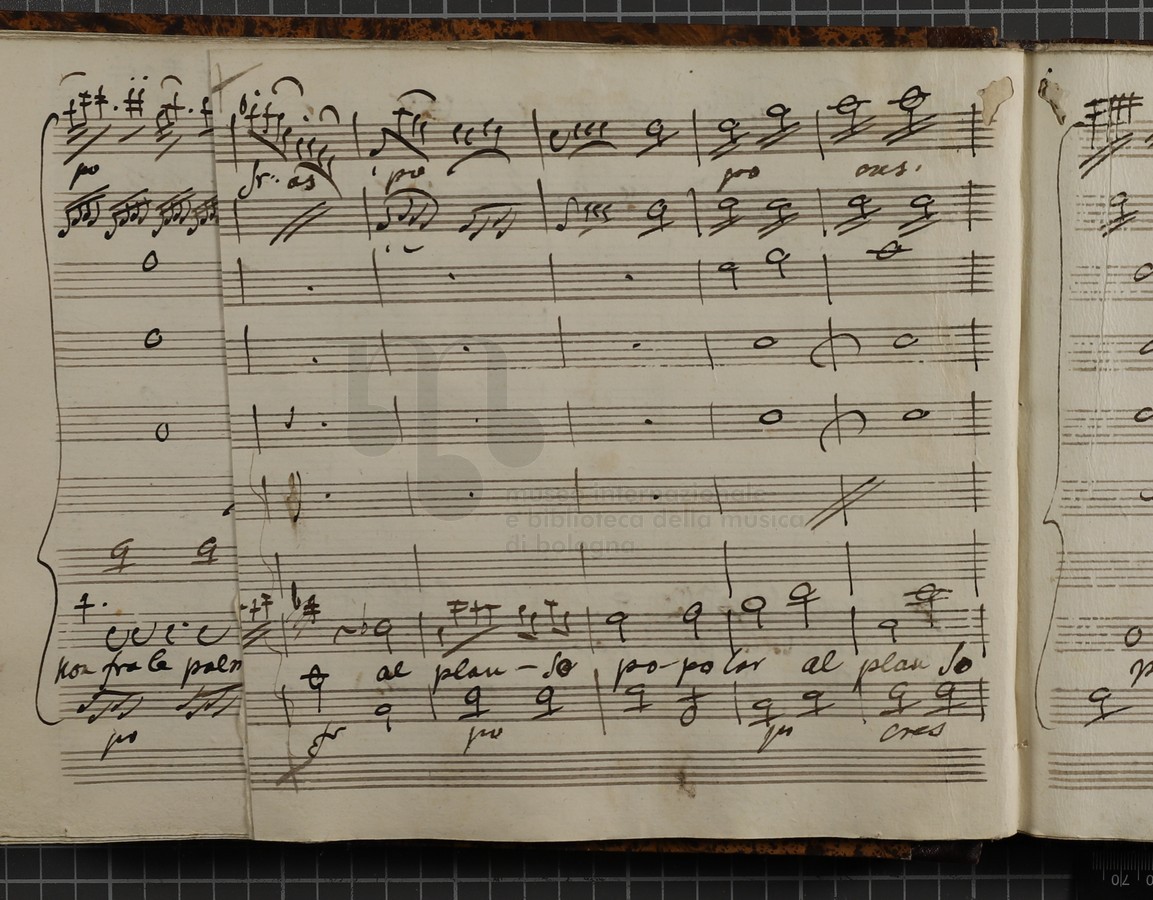 po
fr. as po po cres.
museo internazionale
e biblioteca della musica
di bologna
Non fra le palm al plau-so po-polar al plauso
po fr po po cres
70